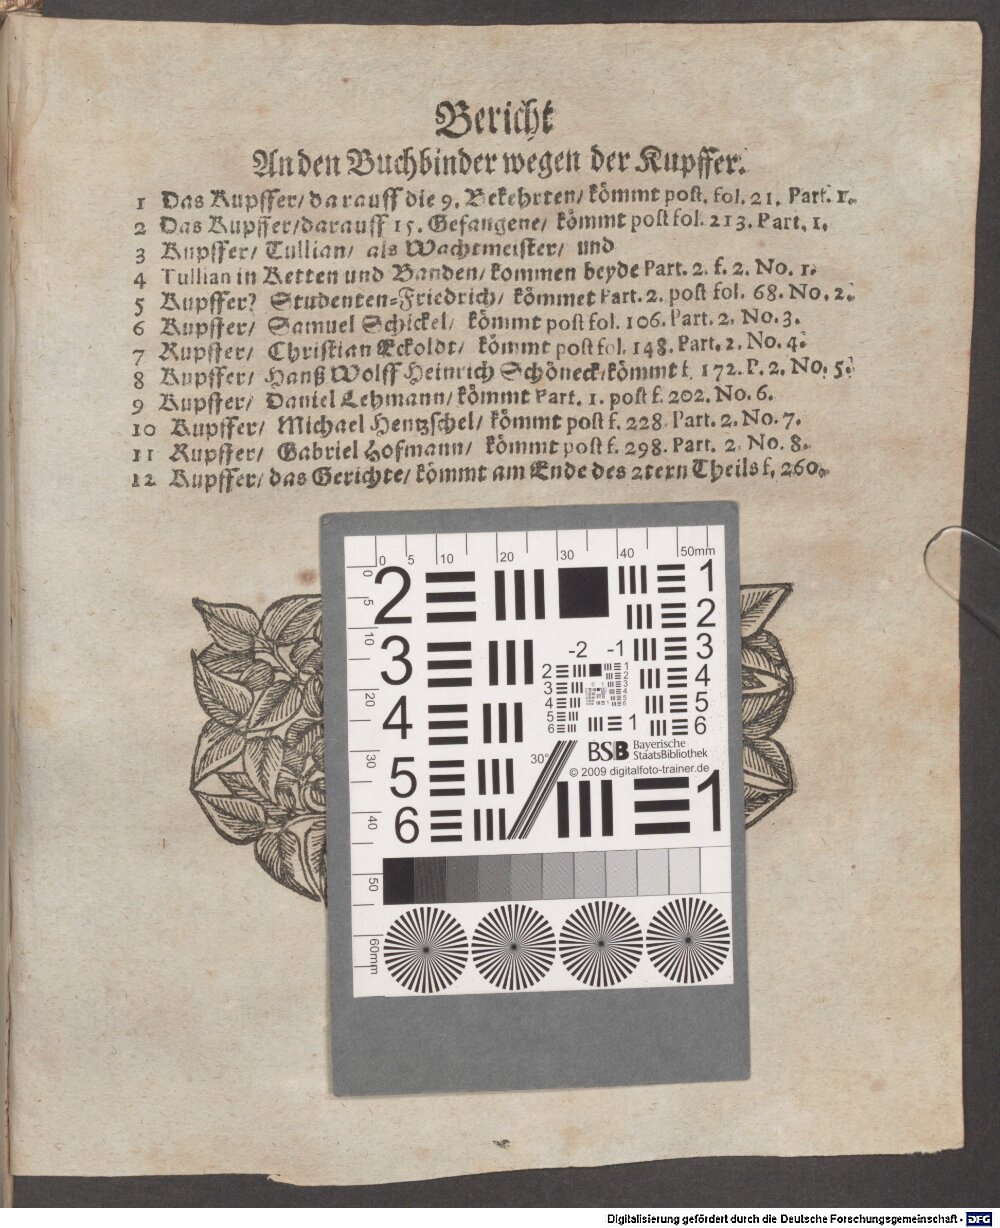 Bericht
An den Buchbinder wegen der Kupffer.
1 Das Kupffer/ darauff die 9. Bekehrten/ kömmt post. fol. 21. Part. 1.
2 Das Kupffer/ darauff 15. Gefangene/ kömmt post fol. 213. Part. 1.
3 Kupffer/ Tullian/ als Wachtmeister/ und
4 Tullian in Ketten und Banden/ kommen beyde Part. 2. f. 2. No. 1.
5 Kupffer? Studenten-Friedrich/ kömmet Part. 2. post fol. 68. No. 2.
6 Kupffer/ Samuel Schickel/ kömmt post fol. 106. Part. 2. No. 3.
7 Kupffer/ Christian Eckoldt/ kömmt post fol. 148. Part. 2. No. 4.
8 Kupffer/ Hanß Wolff Heinrich Schöneck/ kömmt f. 172. P. 2. No. 5.
9 Kupffer/ Daniel Lehmann/ kömmt Part. 1. post f. 202. No. 6.
10 Kupffer/ Michael Hentzschel/ kömmt post f. 228. Part. 2. No. 7.
11 Kupffer/ Gabriel Hofmann/ kömmt post f. 298. Part. 2. No. 8.
12 Kupffer/ das Gerichte/ kömmt am Ende des 2tern Theils f. 260.
0 5 10 20 30 40 50mm
0 5 10 20 30 40 50 60mm
2 1
2
3 3
-2 -1
4 4
5
6
1
5
30°
BSB Bayerische
StaatsBibliothek
© 2009 digitalfoto-trainer.de
6 1
Digitalisierung gefördert durch die Deutsche Forschungsgemeinschaft - DFG